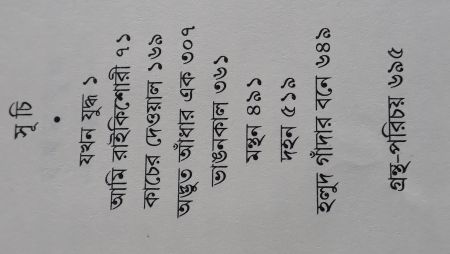 সূ চি
•
যখন যুদ্ধ ১
আমি রাইকিশোরী ৭১
কাচের দেওয়াল ১৬৯
অদ্ভুত আঁধার এক ৩০৭
ভাঙনকাল ৩৬১
মন্থন ৪৯১
দহন ৫১৯
হলুদ গাঁদার বনে ৬৪৯
গ্রন্থ-পরিচয় ৬৯৫